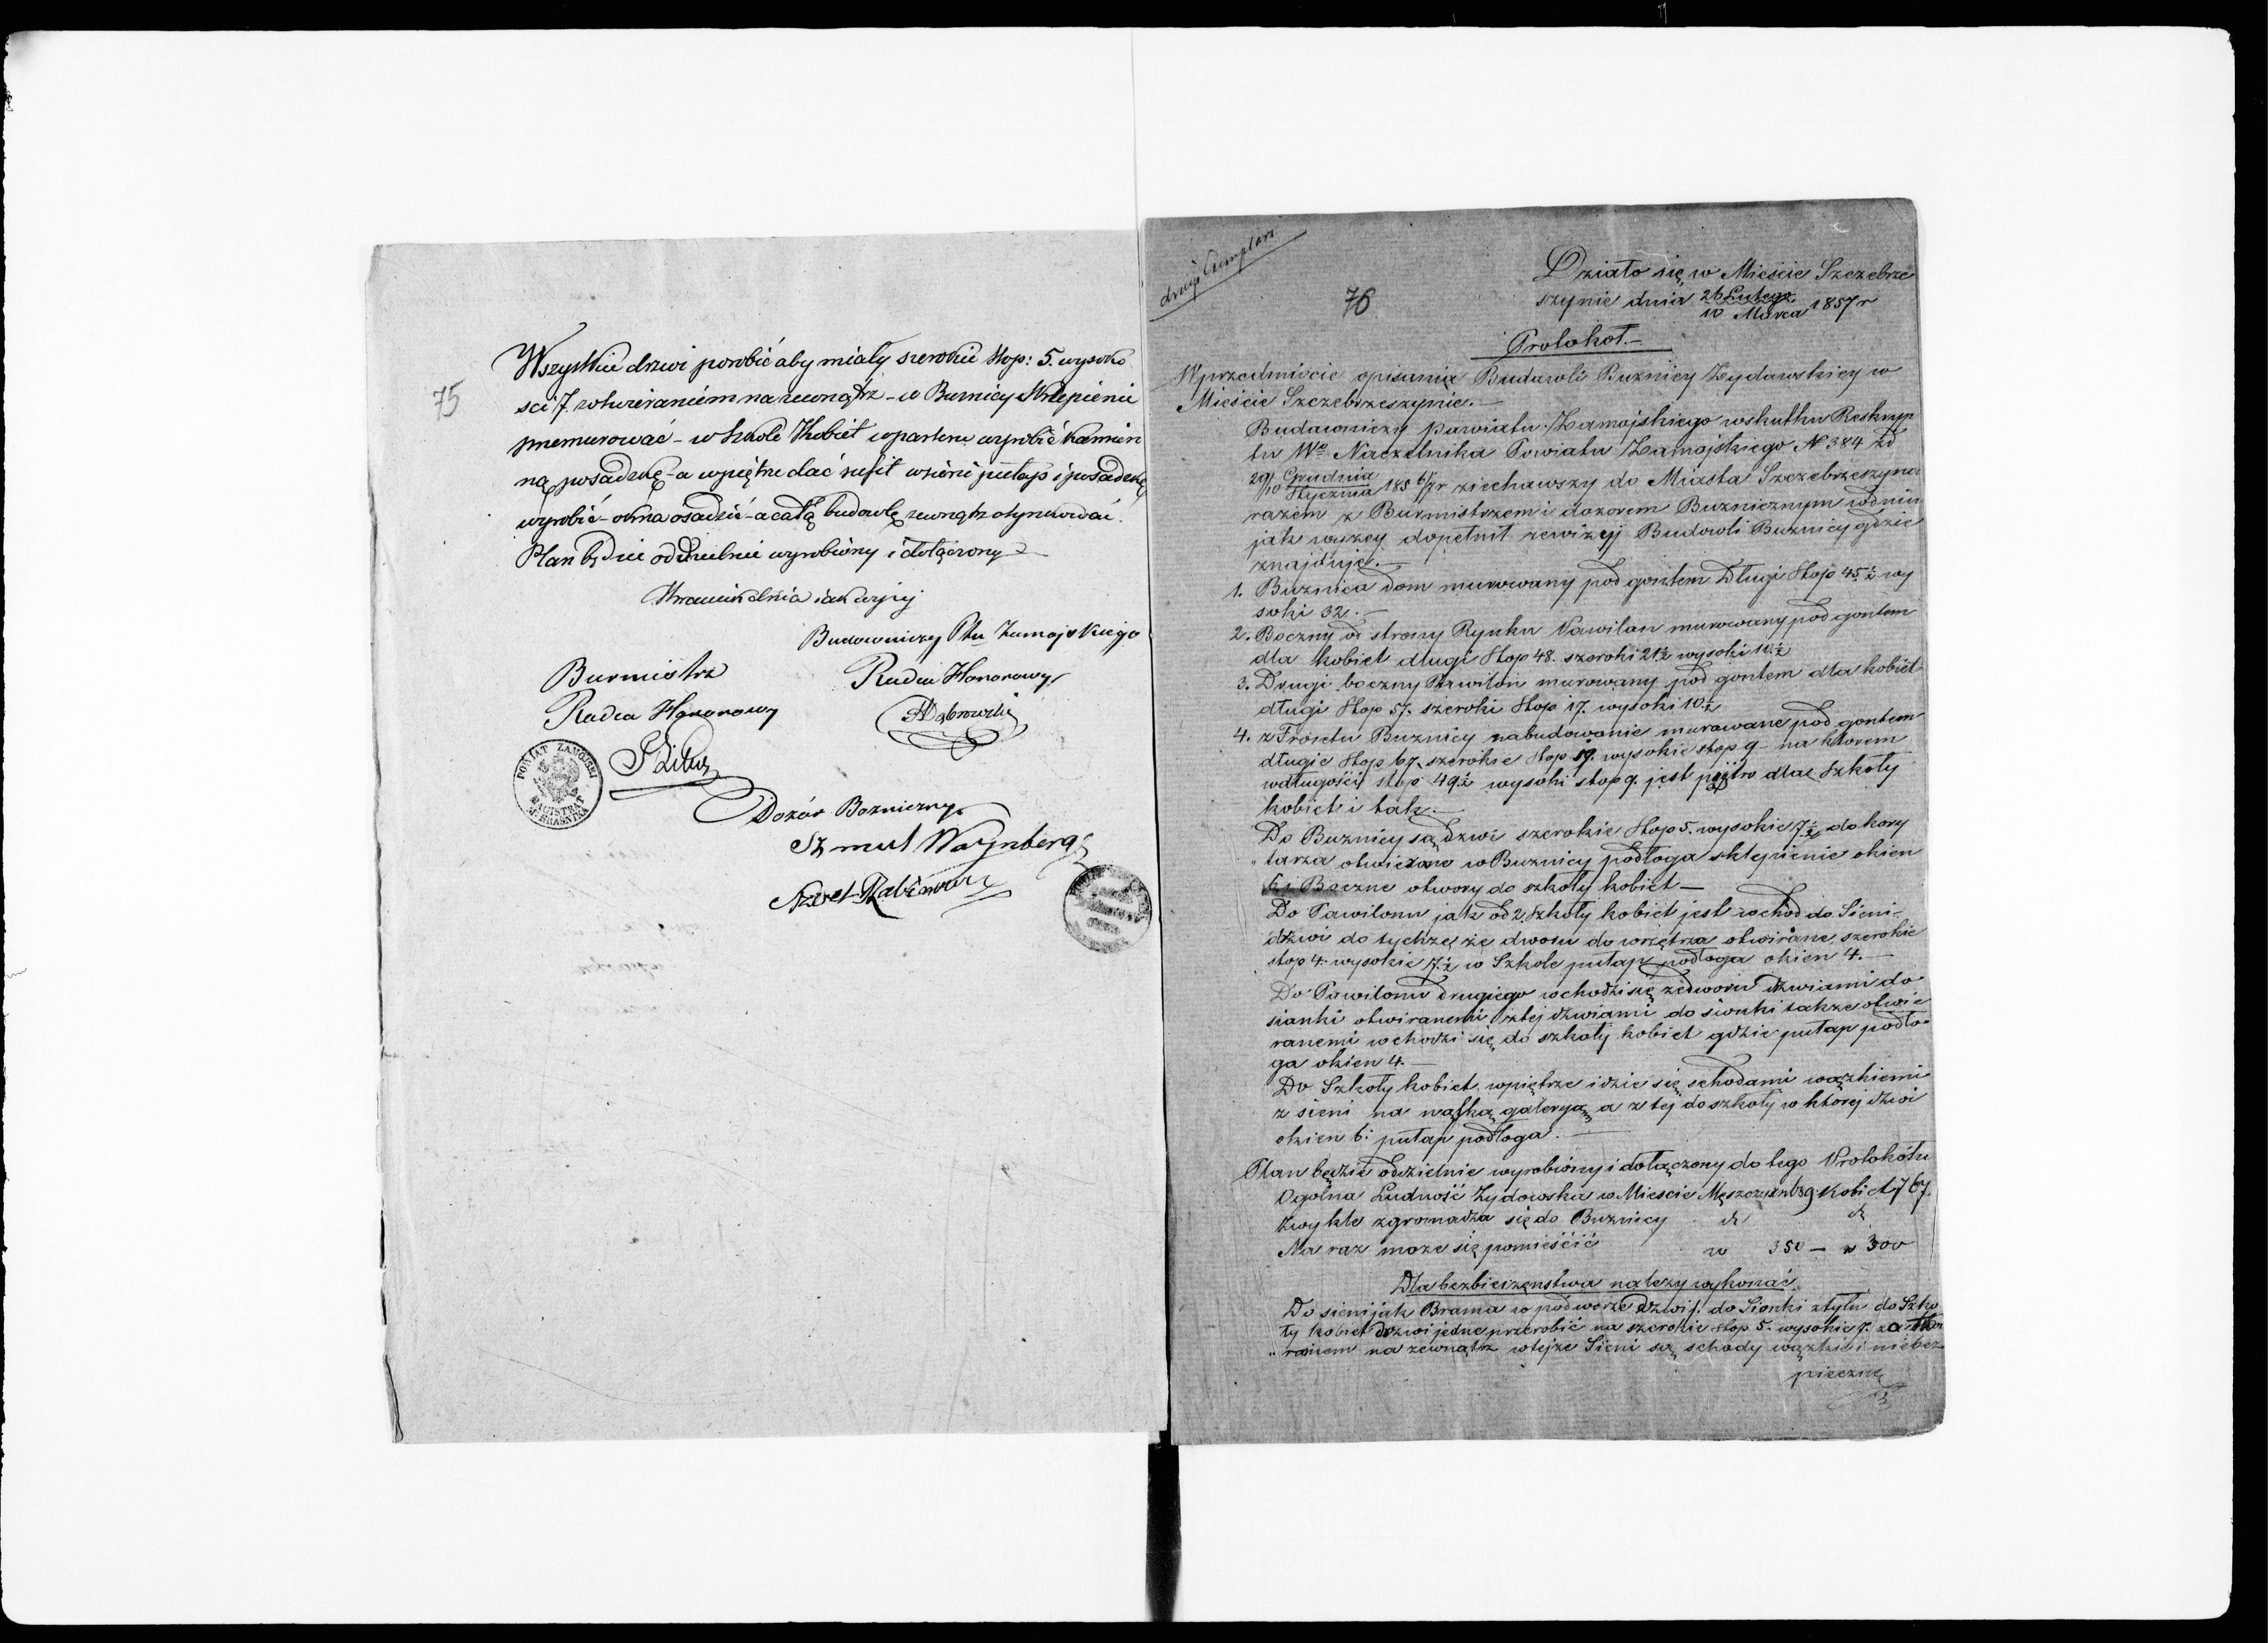 75
Wszystkie drzwi porobić aby miały szerokie stop: 5. wysoko
sci 7. z otwieraniem na zewnątrz - w Buznicy Sklepienie
przemurować - w szkole Kobiet w parterze wyrobić kamien
ną posadzkę - a w piętrze dać sufit w sieni pułap i posadzkę
wyrobić - okna osadzić - a całą budowlę zewnątrz otynkować.
Plan będzie oddzielnie wyrobiony i dołączony
Kraśnik dnia jak wyżej
Budowniczy Ptu Zamojskiego
Burmistrz
Radca Honorowy
Radca Honorowy
Dąbrowski
POWIAT ZAMOJSKI
MAGISTRAT
M. KRASNIKA
Dozór Bozniczny
Szmul Waynberg
drugi Exemplarz
76
Działo się w Mieście Szczebrze
szynie dnia 26 Lutego
10 Marca 1857 r
Protokół.-
W przedmiocie opisania Budowli Buznicy Zydowskiey w
Mieście Szczebrzeszynie.-
Budowniczy powiatu Zamojskiego wskutku Reskryp
tu Wo Naczelnika Powiatu Zamojskiego N 384 zd
29/10 Grudnia
Stycznia 185 6/7 r ziechawszy do Miasta Szczebrzeszyna
razem z Burmistrzem i dozorem Buznicznym w dniu
jak wyzey dopełnił rewizyj Budowli Buznicy gdzie
znajduje.-
1. Buznica dom murowany pod gontem Długi Stop 45 1/2 wy
soki 32.-
2. Boczny od strony Rynku Pawilon murowany pod gontem
dla kobiet długi Stop 48. szeroki 21 1/2 wysoki 10 1/2
3. Drugi boczny Pawilon murowany pod gontem dla kobiet
długi Stop 57. szeroki Stop 17. wysoki 10 1/2
4. z Frontu Buznicy nabudowanie murowane pod gontem
długie Stop 67. szerokie Stop 19. wysokie stop 9 - na którem
w długości stop 49 1/2 wysoki stop 9. jest piętro dla Szkoły
kobiet i tak.-
Do Buznicy są dzwi szerokie Stop 5. wysokie 7 1/2 do kory
"tarza otwierane w Buznicy podłoga sklepienie okien
6 i Boczne otwory do szkoły kobiet -
Do Pawilonu jak od 2. Szkoły kobiet jest wchod do Sieni-
dzwi do tychze ze dworu do wnętrza otwirane, szerokie
stop 4. wysokie 7 1/2 w Szkole pułap podłoga okien 4.-
Do Pawilonu drugiego wchodzi się zedworu dzwiami do
sianki otwiranemi z tej dzwiami do sionki takze otwie
ranemi wchodzi się do szkoły kobiet gdzie pułap podło
ga okien 4.-
Do Szkoły kobiet w piętrze idzie się schodami wązkiemi
z sieni na wąską galeryą a z tej do szkoły w ktorej dzwi
okien 6: pułap podłoga.-
Plan będzie oddzielnie wyrobiony i dołączony do tego Protokółu
Ogolna Ludność Zydowska w Miescie Męszczyzn 689 Kobiet 767.
Zwykle zgromadza się do Buznicy d d
Na raz moze się pomieścić w 350 - w 300
Dla bezbieczenstwa nalezy wykonać.
Do sieni jak Brama w podworze dzwi f. do Sionki z tyłu do Szko
ły Kobiet dzwi jedne przerobić na szerokie stop 5. wysokie 7. z otwie
"raniem na zewnątrz w tejze Sieni są schody wązkie i niebez
pieczne